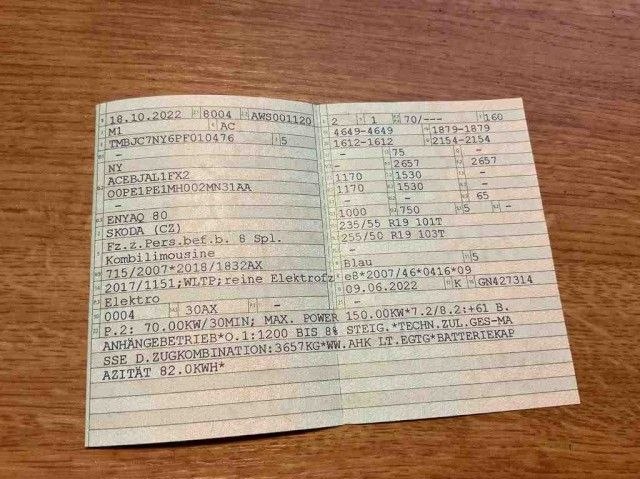 18.10.2022 8004 AWS001120
M1 AC
TMBJC7NY6PF010476 5
-
NY
ACEBJAL1FX2
OOPE1PE1MH002MN31AA
-
ENYAQ 80
SKODA (CZ)
Fz.z.Pers.bef.b. 8 Spl.
Kombilimousine
715/2007*2018/1832AX
2017/1151;WLTP;reine Elektrofz
Elektro
0004 30AX -
2 1 70/--- 160
4649-4649 1879-1879
1612-1612 2154-2154
- 75 -
- 2657 2657
1170 1530 -
1170 1530 -
- - 65
1000 750 5 -
235/55 R19 101T
255/50 R19 103T
-
Blau 5
e8*2007/46*0416*09
09.06.2022 K GN427314
-
P.2: 70.00KW/30MIN; MAX. POWER 150.00KW*7.2/8.2:+61 B.
ANHÄNGEBETRIEB*O.1:1200 BIS 8% STEIG.*TECHN.ZUL.GES-MA
SSE D.ZUGKOMBINATION:3657KG*WW.AHK LT.EGTG*BATTERIEKAP
AZITÄT 82.0KWH*